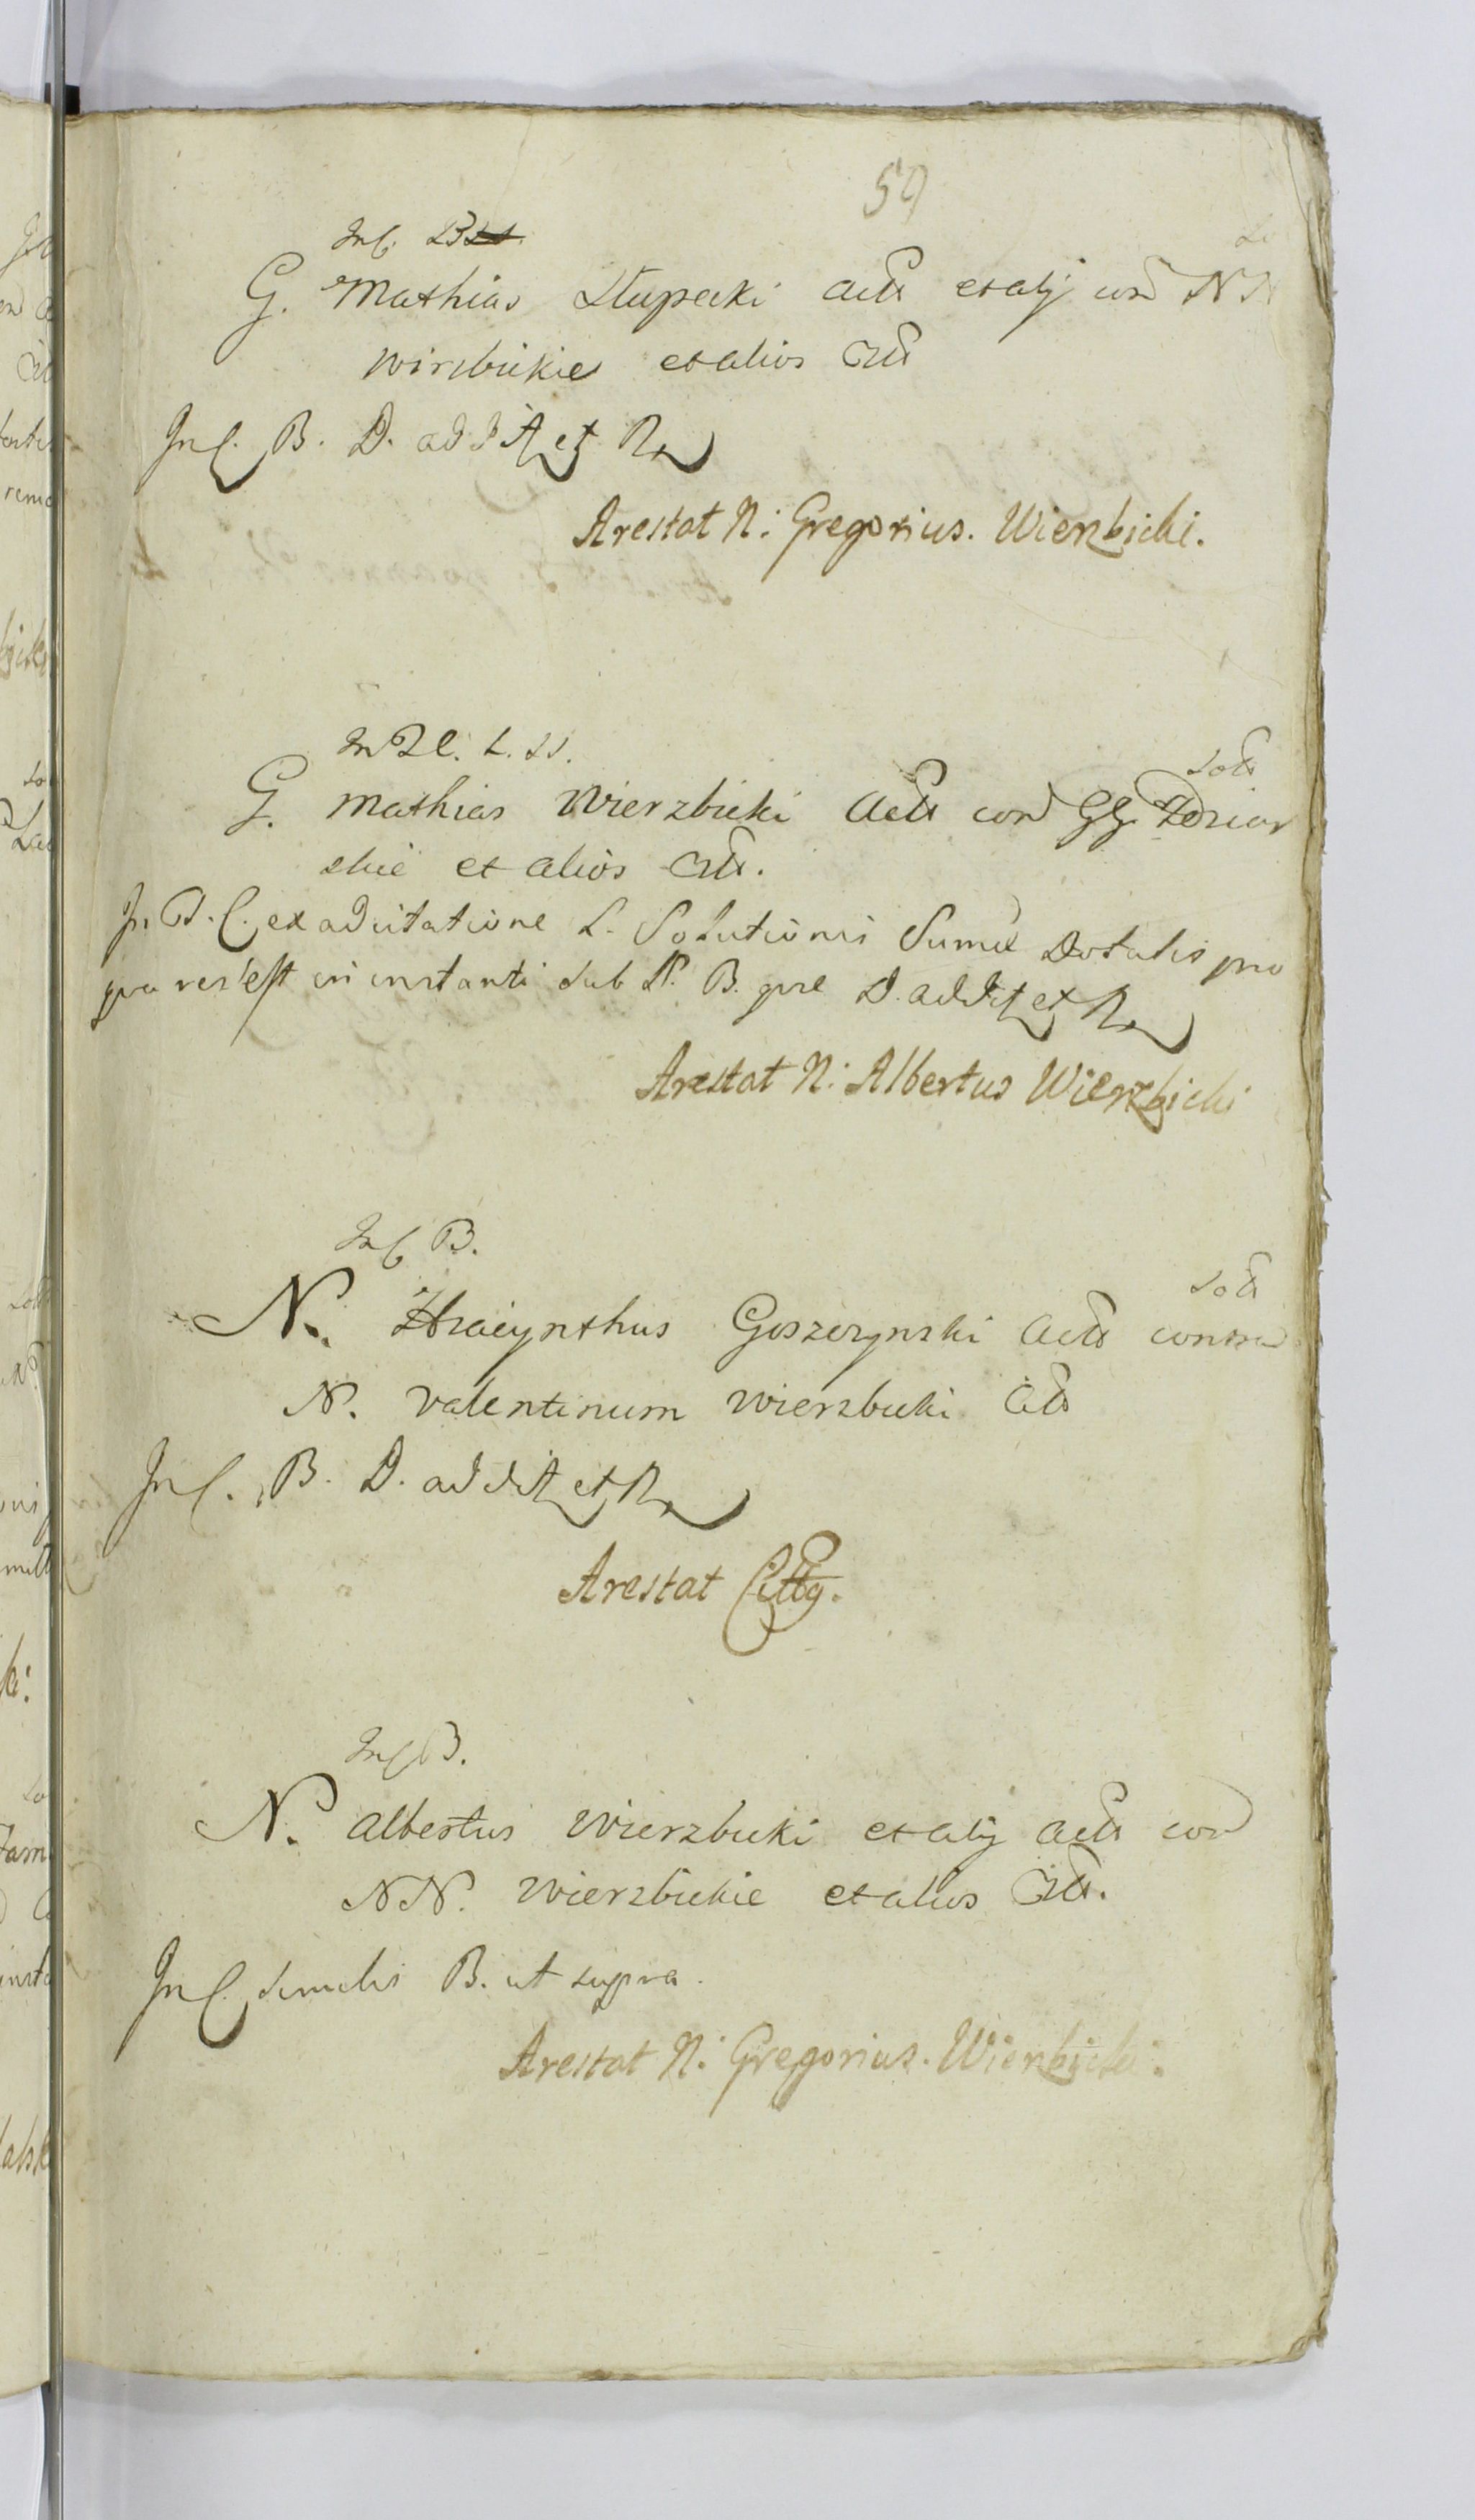 59
G. Mathias Słupecki Actt et alij con NN
Wirzbickie et alios Citt
In C. B. D. addit et R
Arestat N: Gregorius. Wierzbicki.
L. SS.
Sott
G. Mathias Wierzbicki Actt con GG
skie et alios Citt.
ex adcitatione L. Solutionis Summæ Dotalis pro
qua res est in instanti sub P. B. quæ D. addit et R
Arestat N: Albertus Wierzbicki
B.
Sott
N. Hyacynthus Goszczynski Actt contra
N. Valentinum Wierzbicki Citt
In C. B. D. addit et R
Arestat
B.
N. Albertus Wierzbicki et alij Actt con
NN. Wierzbickie et alios Citt.
In C. similis B. ut supra.
Arestat N: Gregorius. Wierzbicki.